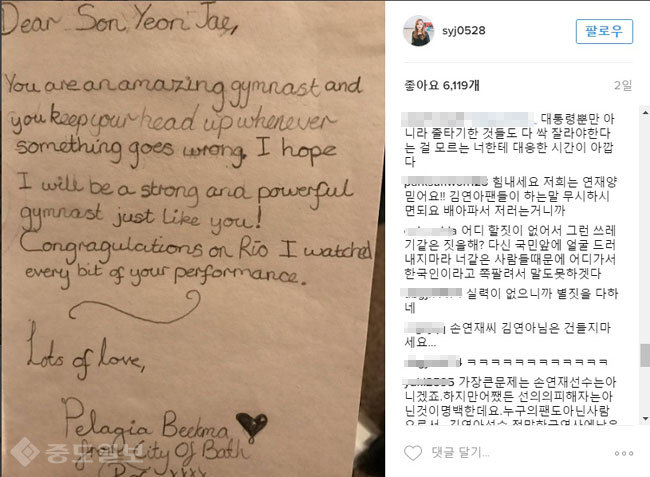 Dear Son Yeon Jae,
You are an amazing gymnast and
you keep your head up whenever
something goes wrong. I hope
I will be a strong and powerful
gymnast just like you!
Congragulations on Rio I watched
every bit of your performance.
Lots of love,
Pelagia
from City Of Bath
xxxx
중도일보
syj0528
팔로우
좋아요 6,119개
2일
. 대통령뿐만 아
니라 줄타기한 것들도 다 싹 잘라야한다
는 걸 모르는 너한테 대응한 시간이 아깝
다
힘내세요 저희는 연재양
믿어요!! 김연아팬들이 하는말 무시하시
면되요 배아파서 저러는거니까
어디 할짓이 없어서 그런 쓰레
기같은 짓을해? 다신 국민앞에 얼굴 드러
내지마라 너같은 사람들때문에 어디가서
한국인이라고 쪽팔려서 말도못하겠다
실력이 없으니까 별짓을 다하
네
손연재씨 김연아님은 건들지마
세요...
4 ㅋㅋㅋㅋㅋㅋㅋㅋㅋㅋㅋㅋ
가장큰문제는 손연재선수는아
니겠죠.하지만어쨌든 선의의피해자는아
닌것이명백한데요.누구의팬도아닌사람
댓글 달기...